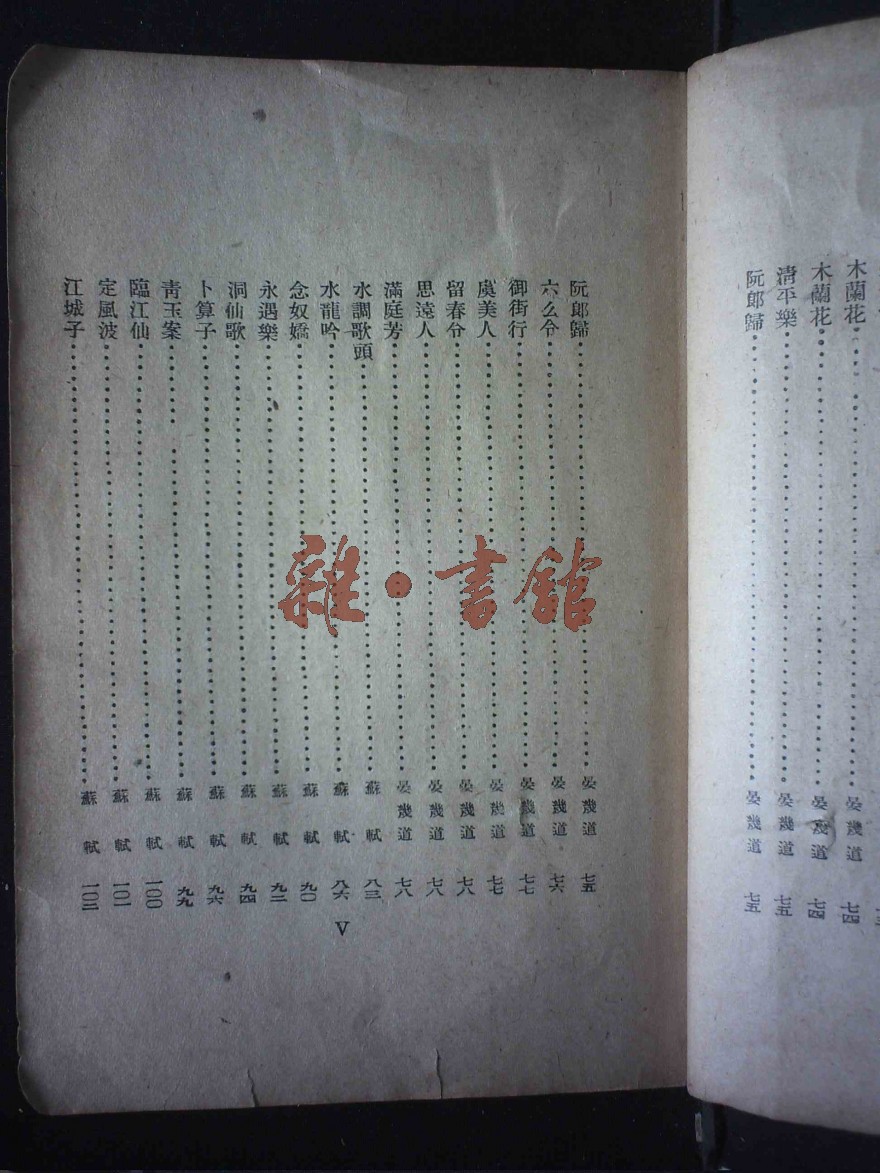 木蘭花 晏幾道 七四
木蘭花 晏幾道 七四
清平樂 晏幾道 七五
阮郎歸 晏幾道 七五
阮郎歸 晏幾道 七五
六么令 晏幾道 七六
御街行 晏幾道 七七
虞美人 晏幾道 七七
留春令 晏幾道 七八
思遠人 晏幾道 七八
滿庭芳 晏幾道 七八
水調歌頭 蘇軾 八三
水龍吟 蘇軾 八六
念奴嬌 蘇軾 九〇
永遇樂 蘇軾 九二
洞仙歌 蘇軾 九四
卜算子 蘇軾 九六
青玉案 蘇軾 九九
臨江仙 蘇軾 一〇〇
定風波 蘇軾 一〇一
江城子 蘇軾 一〇二
V
雜·書館